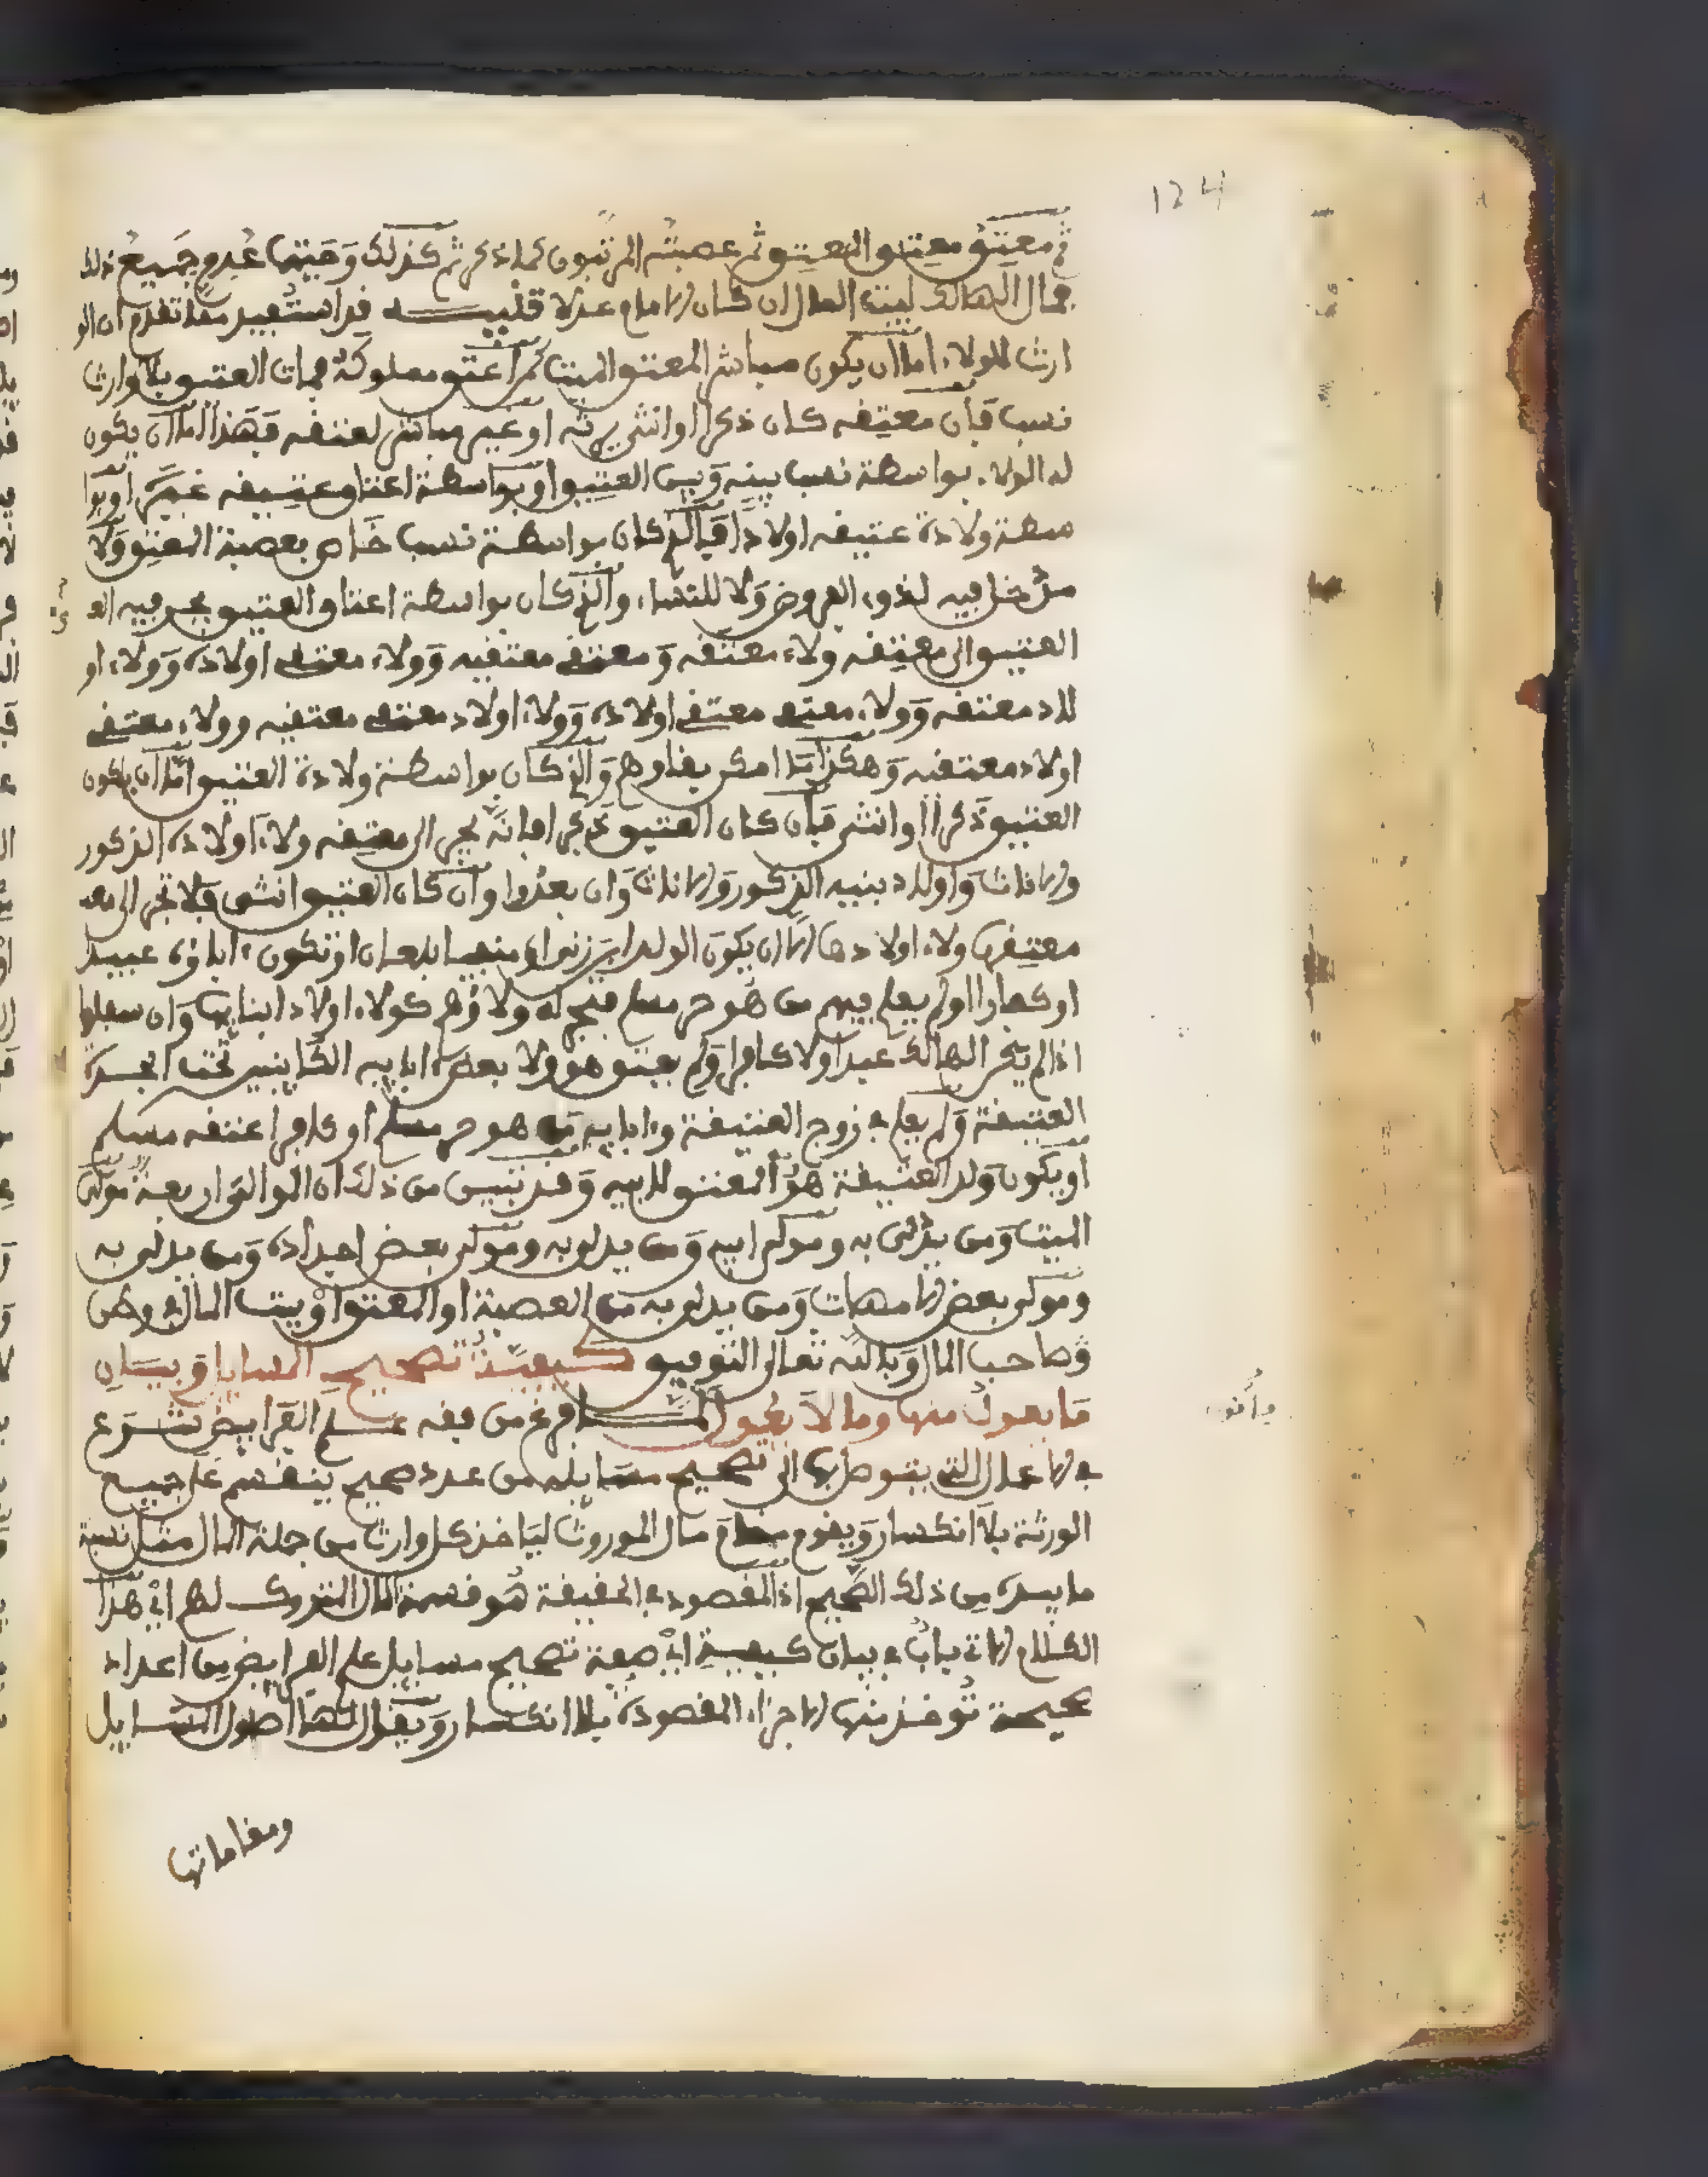 124
ثم معتق معتق المعتق ثم عصبته المرتبون كما ذكر ثم كذلك وحيثما عدم جميع ذلك
فمال الهالك لبيت المال ان كان الامام عدلا تنبيه قد استفيد مما تقدم ان الو
ارث للولاء اما ان يكون مباشر المعتق الميت كمن اعتق مملوكه فمات العتيق بلا وارث
نسب فان معتقه كان ذكرا او انثى يرثه او غير مباشر لعتقه فهذا اما ان يكون
له الولاء بواسطة نسب بينه وبين العتيق او بواسطة اعتاق عتيقه غيره او بوا
سطة ولادة عتيقه اولادا فالذي كان بواسطة نسب خاص بعصبة المعتق ولا
مدخل فيه لذوي الفروض ولا للنساء والذي كان بواسطة اعتاق العتيق يجر فيه الع
العتيق الى معتقه ولاء معتقه ومعتقي معتقيه وولاء معتقي اولاده وولاء او
لاد معتقه وولاء معتقي معتقي اولاده وولاء اولاد معتقي معتقيه وولاء معتقي
اولاد معتقيه وهكذا ما امكن بقاوهم والذي كان بواسطة ولادة العتيق اما ان يكون
العتيق ذكرا او انثى فان كان العتيق ذكرا فانه يجر الى معتقه ولاء اولاده الذكور
والاناث واولاد بنيه الذكور والاناث وان بعدوا وان كان العتيق انثى فلا تجر الى معـ
معتقها ولاء اولادها الا ان يكون الولد ابن زنى او منفيا بلعان او تكون اباؤه عبيدا
او كفارا او لم يعلم فيهم من هو حر مسلم فيجر له ولاؤهم كولاء اولاد ابنايها وان سفلوا
اذا لم يكن الهالك عبدا ولا كافرا ولم يعتق هو ولا بعض ابايه الكاينين تحت الجد
العتيقة ولم يعلم في زوج العتيقة وابايه من هو حر مسلم او كافر اعتقه مسلم
او يكون ولد العتيقة هو المعتق لابيه وقد تبين من ذلك ان الموالي اربعة مولى
الميت ومن يدلي به ومولى ابيه ومن يدلي به ومولى بعض اجداده ومن يدلي به
ومولى بعض الامهات ومن يدلي به من العصبة او المعتق او بيت المال
وصاحب المال وبالله تعالى التوفيق كيفية تصحيح المسايل وبيان
ما يعول منها وما لا يعول لما فرغ من فقه علم الفرايض شرع
في الاعمال التي يتوصل بها الى تصحيح مسايله من عدد صحيح ينقسم على جميع
الورثة بلا انكسار ويقوم مقام مال الموروث لياخذ كل وارث من جملة المال مثل نسبة
ما بيده من ذلك الصحيح اذ المقصود في الحقيقة هو قسمة المال المتروك لهم اي هذا
الكلام الاتي باب في بيان كيفية اي صفة تصحيح مسايل علم الفرايض من اعداد
صحيحة تؤخذ منها الاجزاء المقصودة بلا انكسار ويقال لها اصول المسايل
ومقاماتها